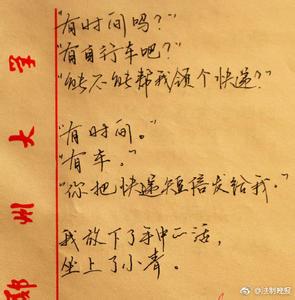 "有时间吗?"
"有自行车吧?"
"能不能帮我领个快递?"
"有时间。"
"有车。"
"你把快递短信发给我。"
我放下了手中的活,
坐上了小青。
州大学
@法制晚报